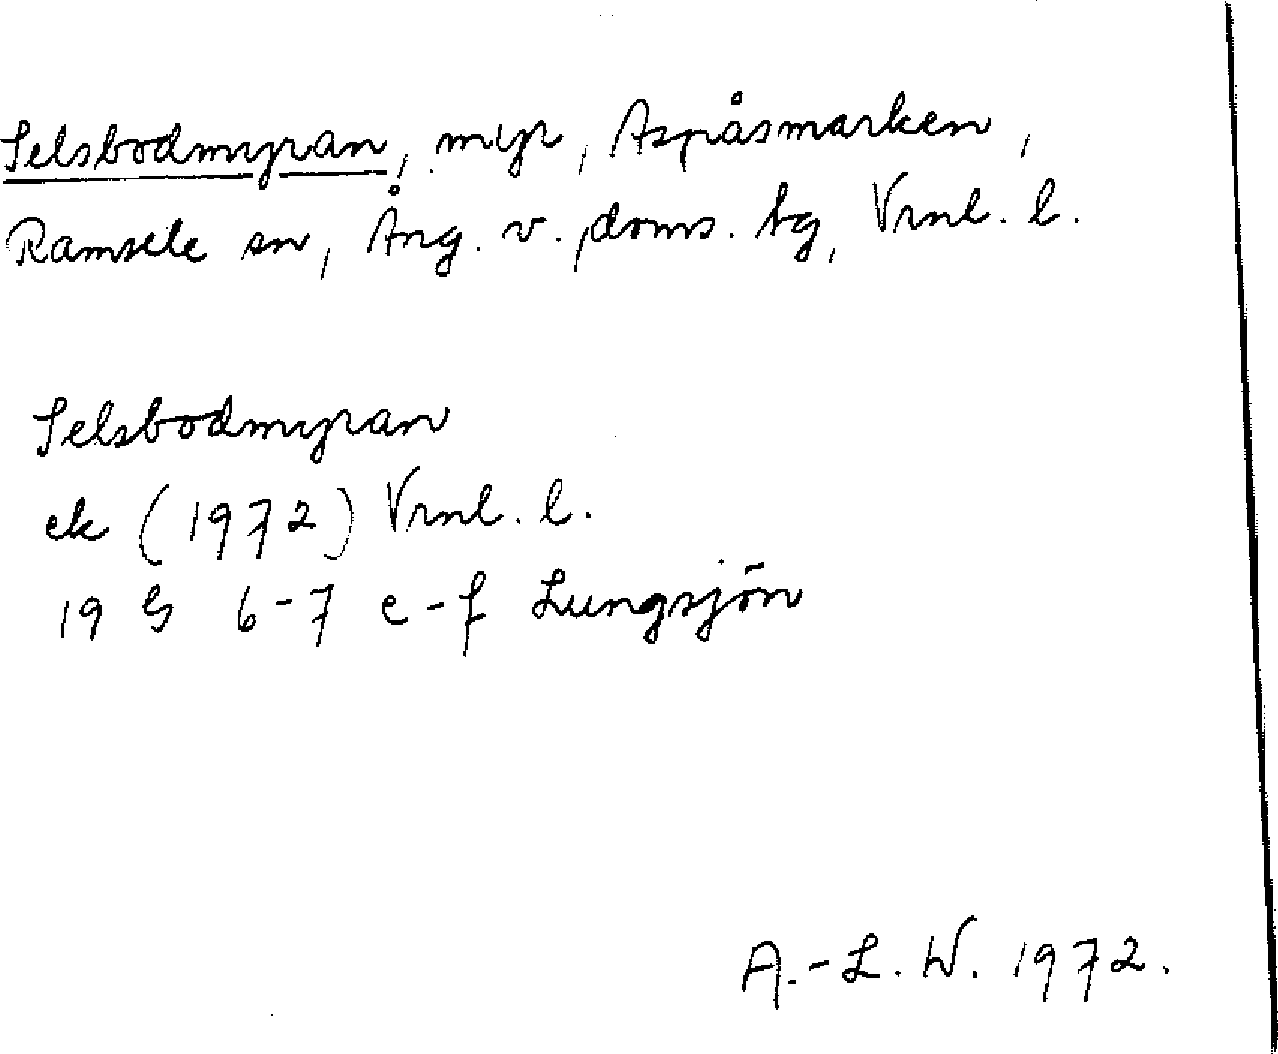 Selsbodmyran, myr, Aspåsmarken,
Ramsele sn, Ång. v. doms. tg, Vrnl. l.
Selsbodmyran
ek (1972) Vrnl. l.
19 G 6-7 e-f Lungsjön
A.-L. W. 1972.